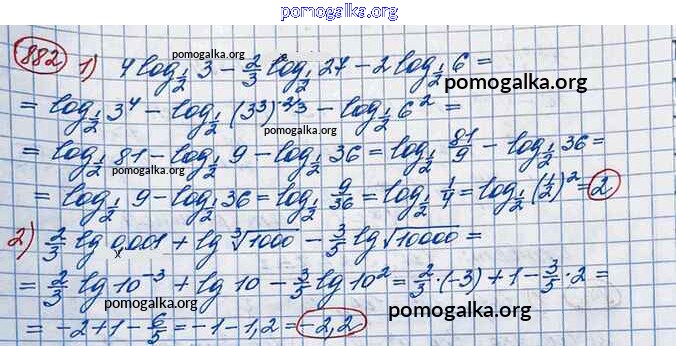 pomogalka.org
882 1) 4 log_{1/2} 3 − 2/3 log_{1/2} 27 − 2 log_{1/2} 6 =
pomogalka.org
pomogalka.org
= log_{1/2} 3^4 − log_{1/2} (3^3)^{2/3} − log_{1/2} 6^2 =
pomogalka.org
= log_{1/2} 81 − log_{1/2} 9 − log_{1/2} 36 = log_{1/2} 81/9 − log_{1/2} 36 =
pomogalka.org
= log_{1/2} 9 − log_{1/2} 36 = log_{1/2} 9/36 = log_{1/2} 1/4 = log_{1/2} (1/2)^2 = 2
pomogalka.org
2) 2/3 lg 0,001 + lg ∛1000 − 3/5 lg √10000 =
pomogalka.org
= 2/3 lg 10^{-3} + lg 10 − 3/5 lg 10^2 = 2/3 · (−3) + 1 − 3/5 · 2 =
pomogalka.org
pomogalka.org
= −2 + 1 − 6/5 = −1 − 1,2 = −2,2